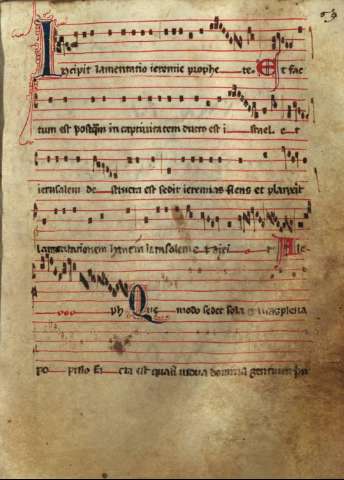 69
Incipit lamentatio ieremie prophe te. Et fac
tum est postqm in captiuitatem ductus est i srael. et
ierusalem de structa est sedit ieremias flens et planxit
lamentationem in ierusalem et dixit. Ale
ph Quo modo sedet sola ciuitas plena
po pulo F cta est quasi uidua domina gentium prin